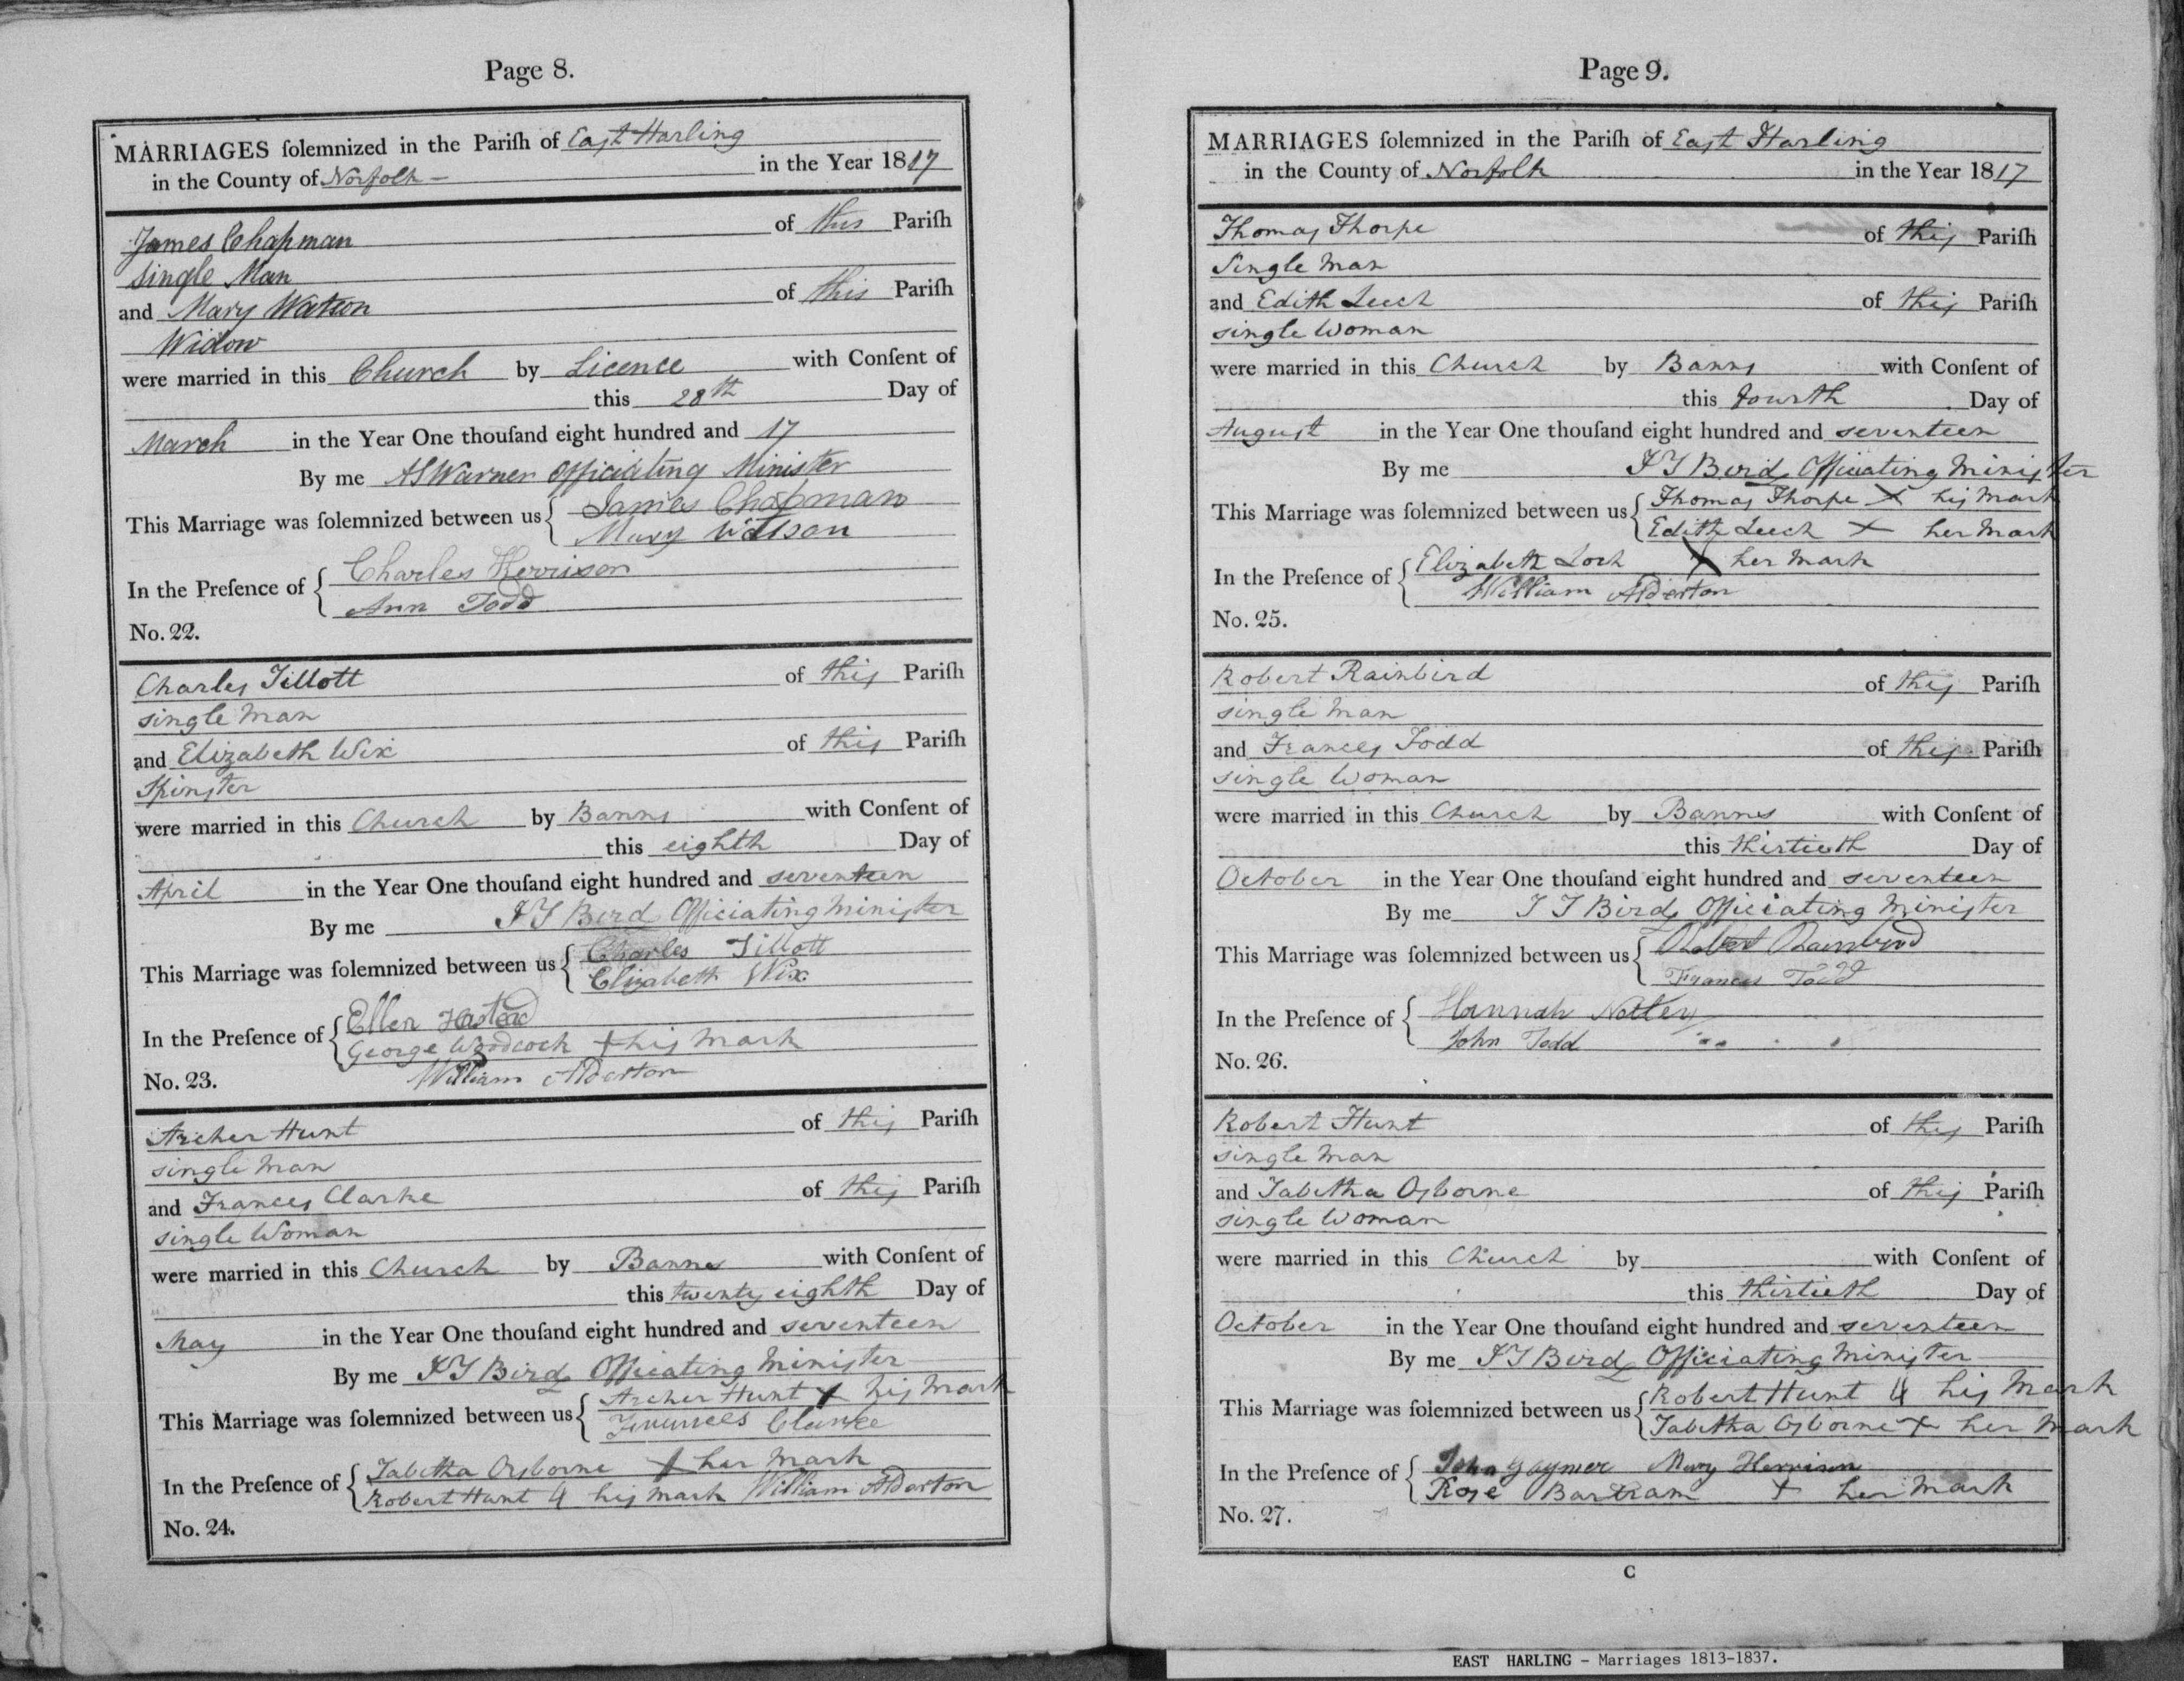 Page 8.
MARRIAGES ſolemnized in the Pariſh of East Harling
in the County of Norfolk – in the Year 1817
James Chapman of this Pariſh
single Man
and Mary Watson of this Pariſh
Widow
were married in this Church by Licence with Conſent of
this 28th Day of
March in the Year One thouſand eight hundred and 17
By me AS Warner Officiating Minister
This Marriage was ſolemnized between us { James Chapman
Mary Watson
In the Preſence of { Charles Herrison
Ann Todd
No. 22.
Charles Tillott of this Pariſh
single Man
and Elizabeth Wix of this Pariſh
Spinster
were married in this Church by Banns with Conſent of
this eighth Day of
April in the Year One thouſand eight hundred and seventeen
By me J T Bird Officiating Minister
This Marriage was ſolemnized between us { Charles Tillott
Elizabeth Wix
In the Preſence of { Ellen Hasted
George Woodcock + his Mark
No. 23. William Alderton
Archer Hunt of this Pariſh
single Man
and Frances Clarke of this Pariſh
single Woman
were married in this Church by Banns with Conſent of
this twenty eighth Day of
May in the Year One thouſand eight hundred and seventeen
By me J T Bird Officiating Minister
This Marriage was ſolemnized between us { Archer Hunt X his Mark
Frances Clarke
In the Preſence of { Tabitha Osborne X her Mark
Robert Hunt 4 his Mark William Alderton
No. 24.
Page 9.
MARRIAGES ſolemnized in the Pariſh of East Harling
in the County of Norfolk in the Year 1817
Thomas Thorpe of this Pariſh
Single Man
and Edith Leech of this Pariſh
single Woman
were married in this Church by Banns with Conſent of
this fourth Day of
August in the Year One thouſand eight hundred and seventeen
By me J T Bird Officiating Minister
This Marriage was ſolemnized between us { Thomas Thorpe X his Mark
Edith Leech X her Mark
In the Preſence of { Elizabeth Lock X her Mark
William Alderton
No. 25.
Robert Rainbird of this Pariſh
single Man
and Frances Todd of this Pariſh
single Woman
were married in this Church by Banns with Conſent of
this thirtieth Day of
October in the Year One thouſand eight hundred and seventeen
By me J T Bird Officiating Minister
This Marriage was ſolemnized between us { Robert Rainbird
Frances Todd
In the Preſence of { Hannah Notley
John Todd
No. 26.
Robert Hunt of this Pariſh
single Man
and Tabitha Osborne of this Pariſh
single Woman
were married in this Church by with Conſent of
this thirtieth Day of
October in the Year One thouſand eight hundred and seventeen
By me J T Bird Officiating Minister
This Marriage was ſolemnized between us { Robert Hunt 4 his Mark
Tabitha Osborne + her Mark
In the Preſence of { John Gaymer Mary Herrison
Rose Bartram + her Mark
No. 27.
C
EAST HARLING – Marriages 1813-1837.